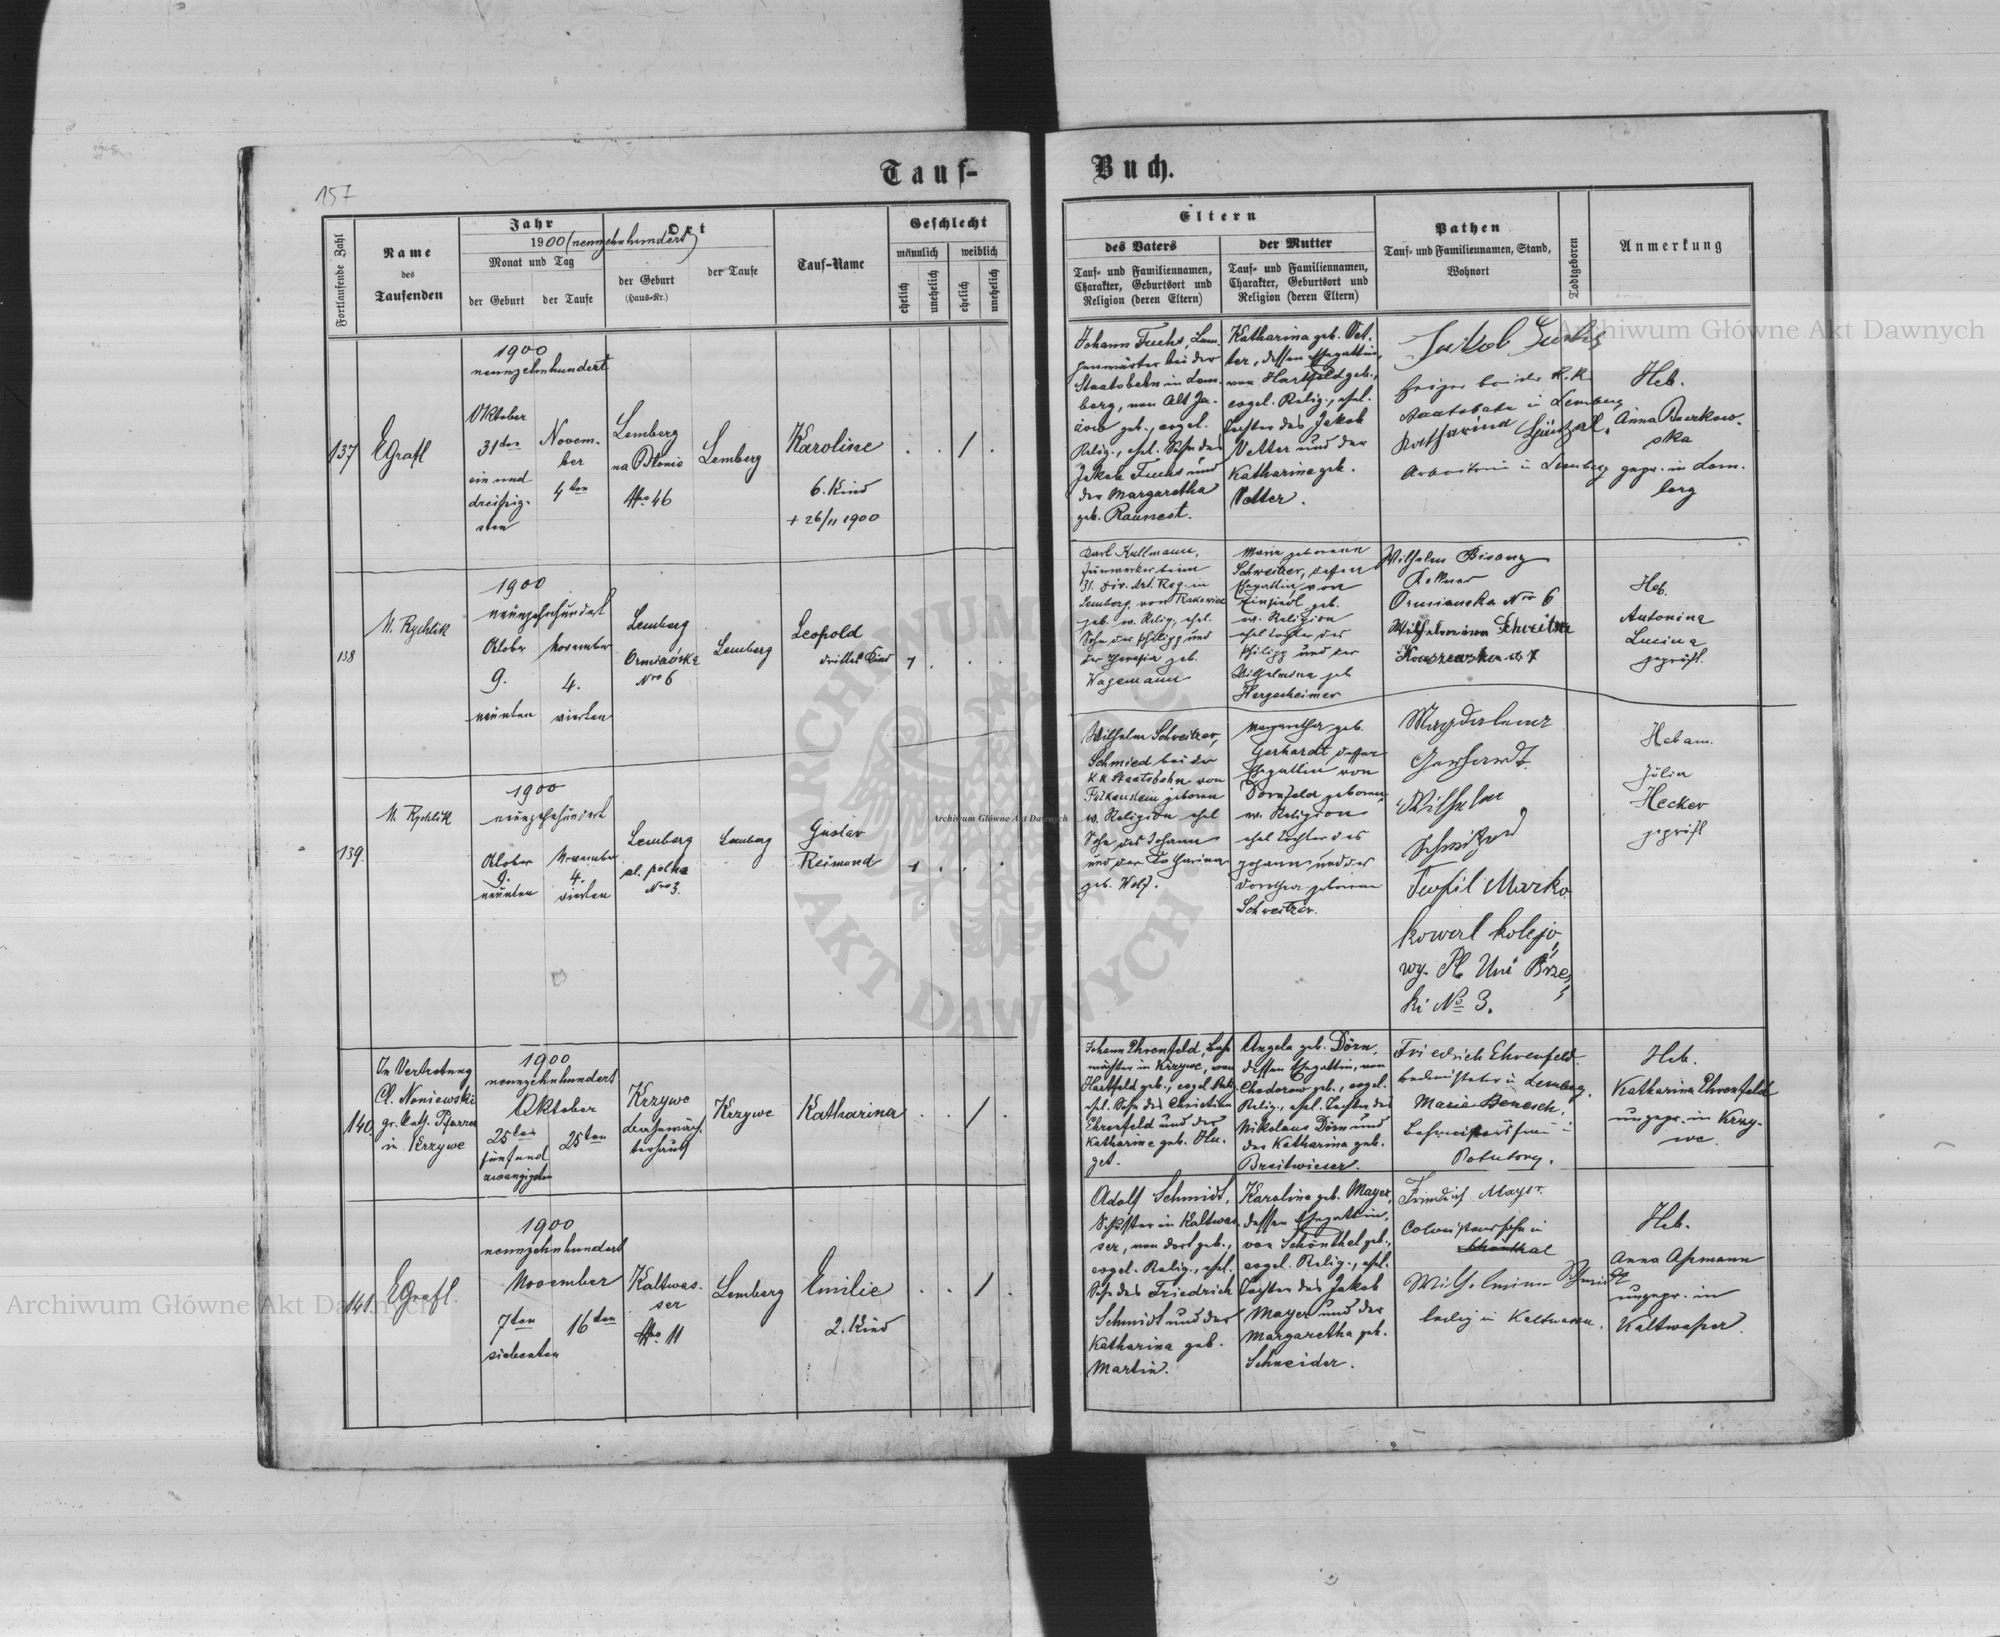 157
Tauf-
Buch.
Fortlaufende Zahl
Name
des
Taufenden
Jahr
1900 (neunzehnhundert)
Monat und Tag
der Geburt
der Taufe
Ort
der Geburt
(Haus-Nr.)
der Taufe
Tauf-Name
Geschlecht
männlich
weiblich
ehelich
unehelich
ehelich
unehelich
Eltern
des Vaters
Tauf- und Familiennamen,
Charakter, Geburtsort und
Religion (deren Eltern)
der Mutter
Tauf- und Familiennamen,
Charakter, Geburtsort und
Religion (deren Eltern)
Pathen
Tauf- und Familiennamen, Stand,
Wohnort
Todtgeboren
Anmerkung
137
EGrafl
1900
neunzehnhundert
Oktober
31ten
ein und
dreißig-
sten
Novem-
ber
4ten
Lemberg
na Błonie
Nro 46
Lemberg
Karoline
6. Kind
+ 26/11 1900
Johann Fuchs, Lam-
penwärter bei der
Staatsbahn in Lem-
berg, von Alt Ja-
zow geb., evgel.
Relig., ehel. Sohn des
Jakob Fuchs und
der Margaretha
geb. Raunest.
Katharina geb. Vet-
ter, dessen Ehegattin,
von Hartfeld geb.,
evgel. Relig., ehel.
Tochter des Jakob
Vetter und der
Katharina geb.
Vetter.
Jakob Fuchs
Heizer bei der k. k.
Staatsbahn in Lemberg
Katharina
in Lemberg
Heb.
Anna Borkow-
ska
gepr. in Lem-
berg
138
M. Rychlik
1900
neunzehnhundert
Oktober
9.
neunten
November
4.
vierten
Lemberg
Ormiańska
Nro 6
Lemberg
Leopold
drittes Kind
1
Karl Kullmann,
beim
31. Div. Art. Reg. in
Lemberg, von
geb. ev. Relig., ehel.
Sohn des Philipp und
der Theresia geb.
Wagemann
Maria geborene
Schweitzer, dessen
Ehegattin, von
Einsiedl geb.
ev. Religion
ehel Tochter des
Philipp und der
Wilhelmina geb
Hergesheimer
Wilhelm Bisanz
Kellner
Ormianska Nro 6
Wilhelmina Schweitzer
Heb.
Antonina
Lucina
geprüft.
139.
M. Rychlik
1900
neunzehnhundert
Oktober
9.
neunten
November
4.
vierten
Lemberg
pl.
Nro 3.
Lemberg
Gustav
Reimund
1
Wilhelm Schweitzer,
Schmied bei der
K K Staatsbahn von
Falkenstein geboren
ev. Religion ehel
Sohn des Johann
und der Katharina
geb. Wolf.
Margaretha geb.
Gerhardt dessen
Ehegattin von
Dornfeld geboren,
ev. Religion
ehel Tochter des
Johann und der
Dorothea geborene
Schweitzer.
Magdalena
Gerhardt
Wilhelm
Teofil Marko
kowal kolejo
wy. Pl. Uni Brzes
ki No 3.
Hebam.
Julia
Hecker
geprüft
140
In Vertretung
Cl. Noniewski
gr. kath. Pfarrer
in Krzywe
1900
neunzehnhundert
Oktober
25ten
fünf und
zwanzigsten
25ten
Krzywe
Krzywe
Katharina
Johann Ehrenfeld, Bahn-
in Krzywe, von
Hartfeld geb., evgel. Rel.
ehel. Sohn des Christian
Ehrenfeld und der
Katharine geb. Hu-
get.
Angela geb. Dörn,
dessen Ehegattin, von
Chodorow geb., evgel.
Relig., ehel. Tochter des
Nikolaus Dörn und
der Katharina geb.
Breitwieser.
Friedrich Ehrenfeld
in Lemberg.
Maria Benesch,
Bahnmeistersfrau in
Potutory.
Heb.
Katharina Ehrenfeld
ungepr. in Krzy-
we.
141.
EGrafl.
1900
neunzehnhundert
November
7ten
siebenten
16ten
Kaltwas-
ser
Nro 11
Lemberg
Emilie
2. Kind
Adolf Schmidt,
Schuster in Kaltwas-
ser, von dort geb.,
evgel. Relig., ehel.
Sohn des Friedrich
Schmidt und der
Katharina geb.
Martin.
Karolina geb. Mayer,
dessen Ehegattin,
von Schönthal geb.,
evgel. Relig., ehel.
Tochter des Jakob
Mayer und der
Margaretha geb.
Schneider.
Friedrich Mayer
Colonistensohn in
Schönthal
Wilhelmina Schmidt
ledig in Kaltwasser.
Heb.
Anna Aßmann
ungepr. in
Kaltwaßer.
Archiwum Główne Akt Dawnych
Archiwum Główne Akt Dawnych
Archiwum Główne Akt Dawnych
ARCHIWUM
AKT DAWNYCH